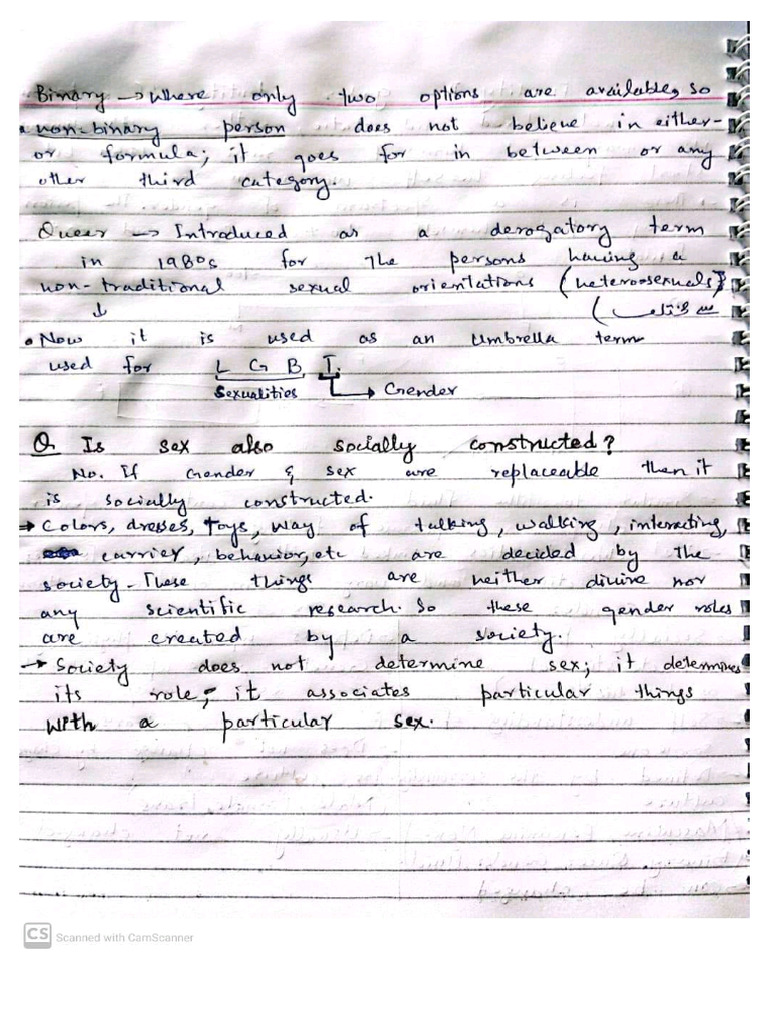 Binary → Where only two options are available, so
a non-binary person does not believe in either-
or formula; it goes for in between or any
other third category.
Queer → Introduced as a derogatory term
in 1980s for the persons having a
non-traditional sexual orientations (heterosexuals
↓
• Now it is used as an umbrella term
used for L G B T.
Sexualities → Gender
Q Is sex also socially constructed?
No. If Gender & sex are replaceable then it
is socially constructed.
→ Colors, dresses, toys, way of talking, walking, interacting,
carrier, behavior, etc are decided by the
society. These things are neither divine nor
any scientific research. So these gender roles
are created by a society.
→ Society does not determine sex; it determines
its role; it associates particular things
with a particular sex.
CS Scanned with CamScanner